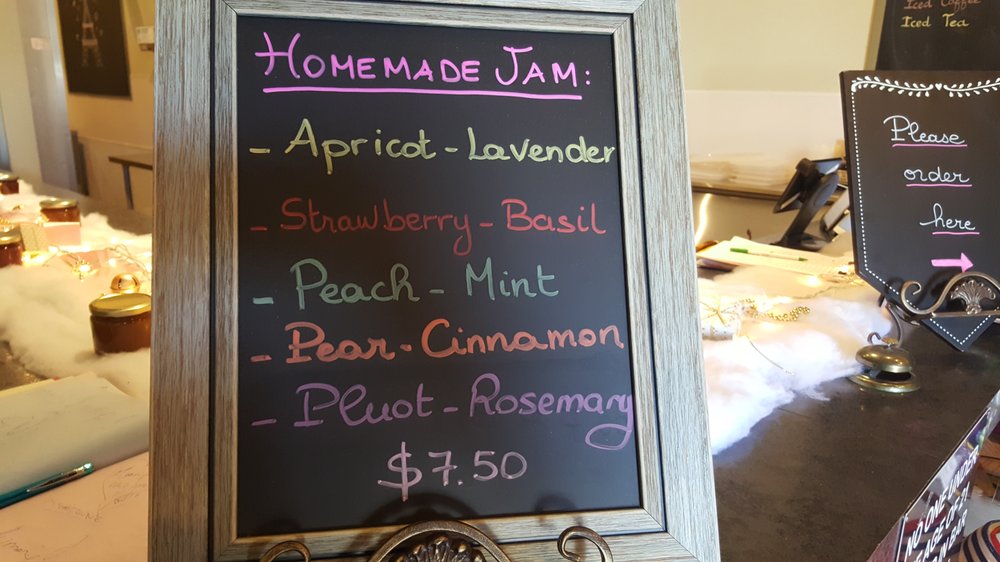 HOMEMADE JAM:
- Apricot - Lavender
- Strawberry - Basil
- Peach - Mint
- Pear - Cinnamon
- Pluot - Rosemary
$7.50
Iced Coffee
Iced Tea
Please
order
here
NO ONE UNDER